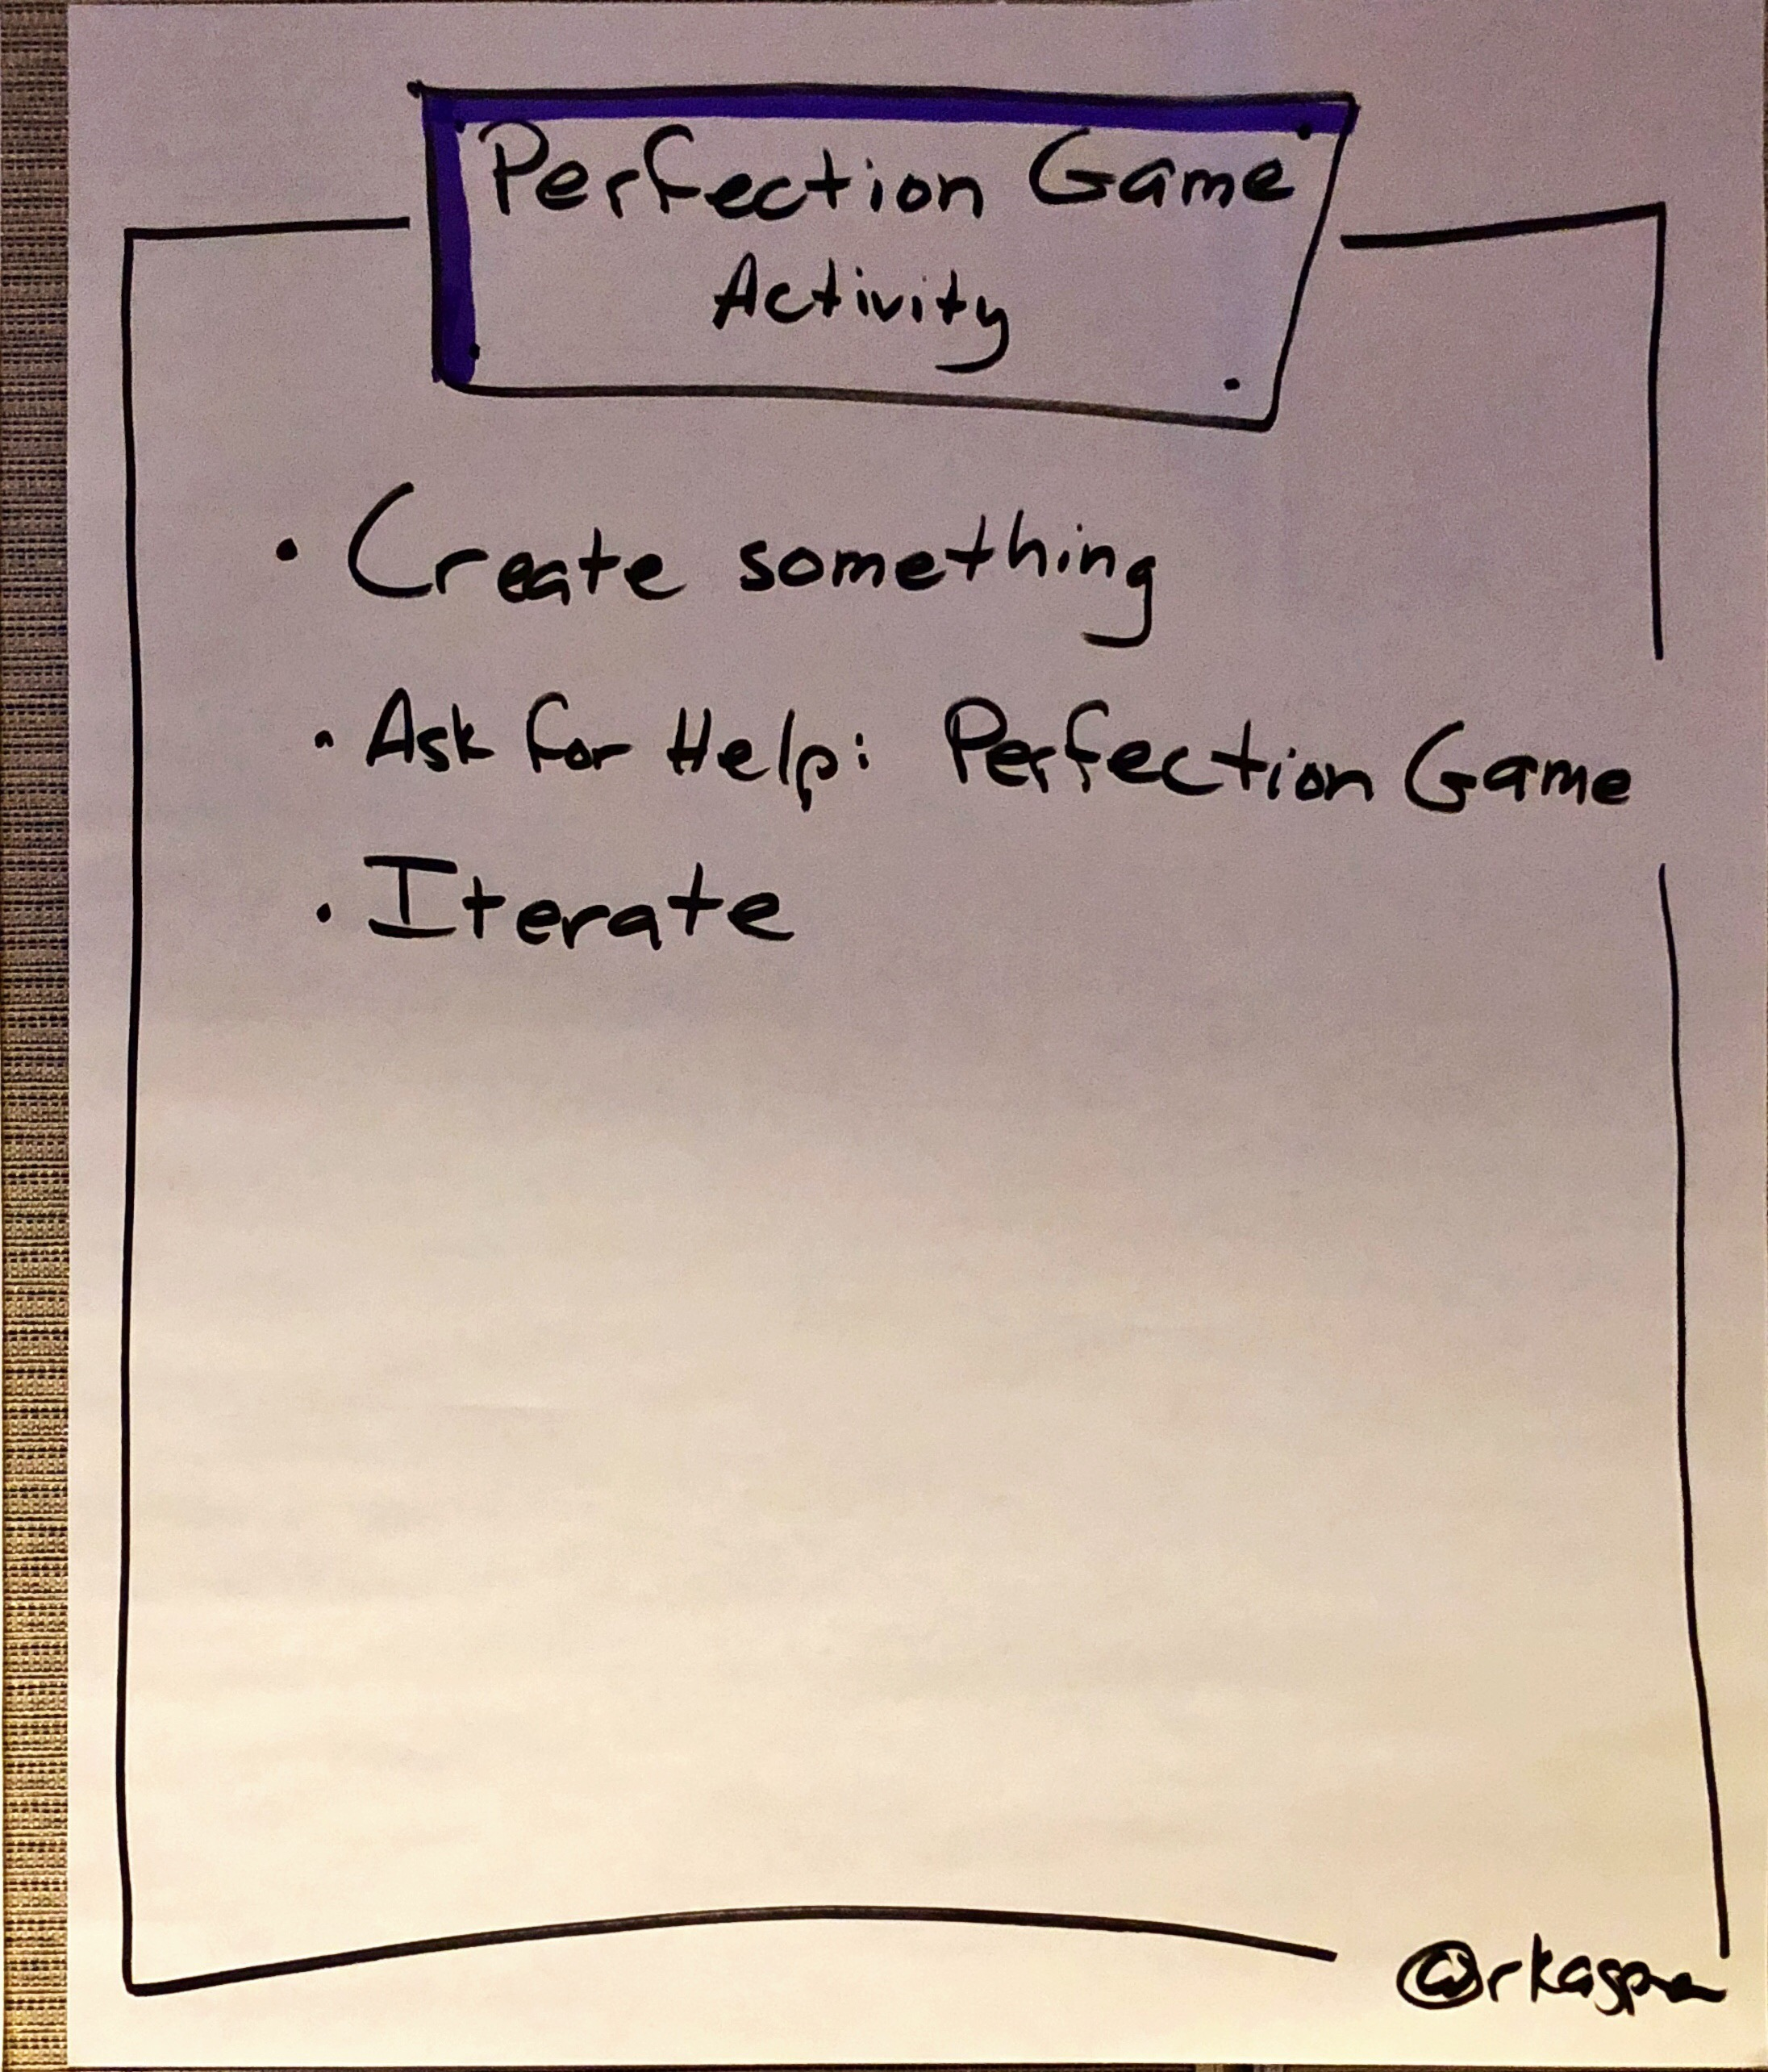 Perfection Game
Activity
• Create something
• Ask for Help: Perfection Game
• Iterate